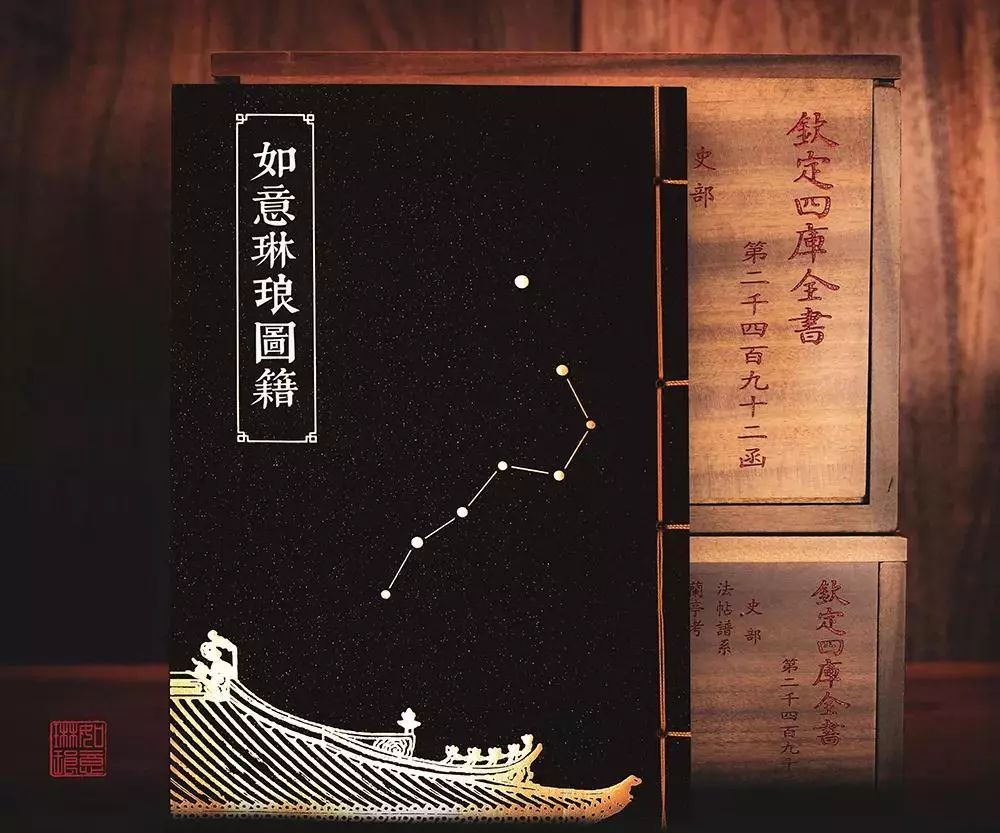 如意琳琅圖籍
欽定四庫全書
史部
第二千四百九十二函
欽定四庫全書
史部
法帖譜系
蘭亭考
第二千四百九十
如意琳琅